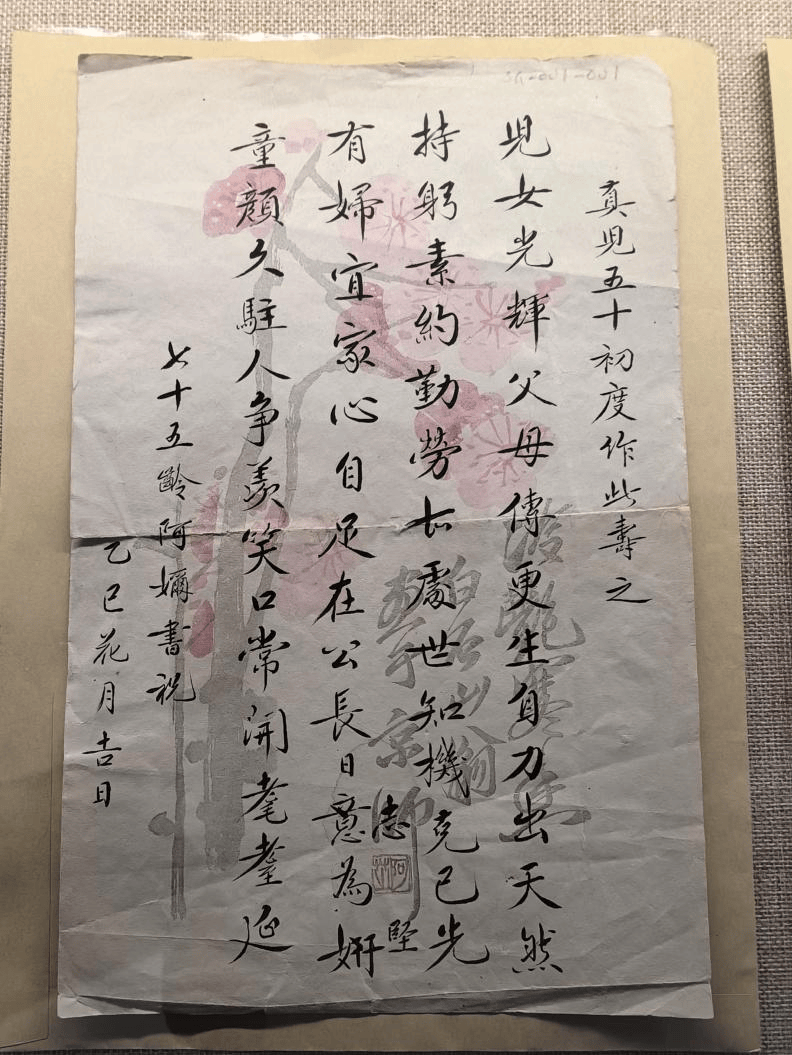 真児五十初度作此壽之
児女光輝父母傳更生自力出天然
持躬素約勤勞處世知機克己先
有婦宜家心自足在公長日意為妍
志堅
童顔久駐人争羨笑口常開耄耋延
七十五齡阿嬭書祝
乙巳花月吉日
SG-001-001